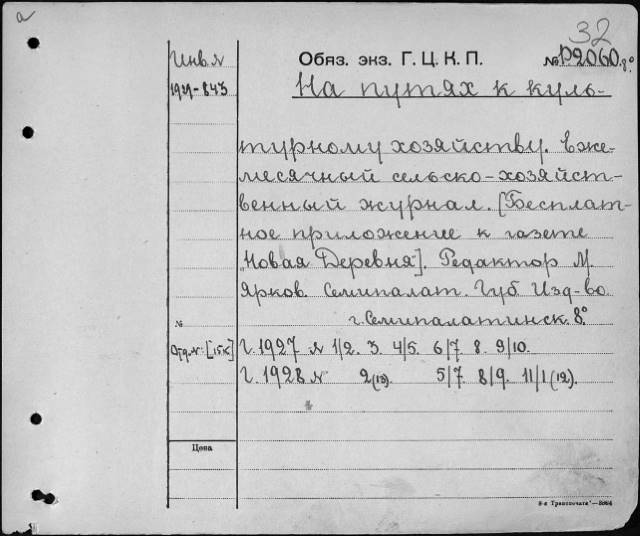 а
32
Инв. №
1929-843
Обяз. экз. Г. Ц. К. П.
№ Р2060.8°
На путях к куль-
турному хозяйству. Еже-
месячный сельско-хозяйст-
венный журнал. [Бесплат-
ное приложение к газете
„Новая Деревня"]. Редактор М.
Ярков. Семипалат. Губ. Изд-во.
г. Семипалатинск. 8°.
№
Отд. №: [15к]
Г. 1927 № 1/2. 3. 4/5. 6/7. 8. 9/10.
Г. 1928 № 2(13). 5/7. 8/9. 11/1(12).
Цена